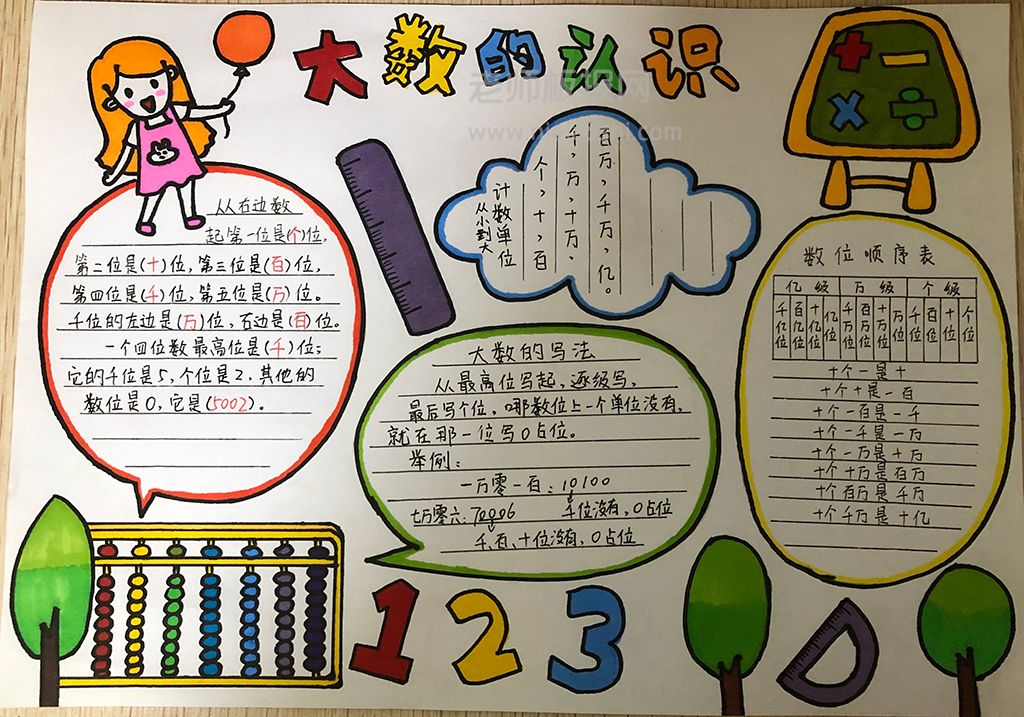 大数的认识
老师板报网
从右边数
起第一位是(个)位,
第二位是(十)位,第三位是(百)位,
第四位是(千)位,第五位是(万)位。
千位的左边是(万)位,右边是(百)位。
一个四位数最高位是(千)位;
它的千位是5,个位是2,其他的
数位是0,它是(5002)。
计数单位
从小到大
个,十,百
千,万,十万,
百万,千万,亿。
大数的写法
从最高位写起,逐级写,
最后写个位,哪数位上一个单位没有,
就在那一位写0占位。
举例:
一万零一百:10100
千位没有,0占位
七万零六:70006
千、百、十位没有,0占位
数位顺序表
亿级 万级 个级
千亿位 百亿位 十亿位 亿位 千万位 百万位 十万位 万位 千位 百位 十位 个位
十个一是十
十个十是一百
十个一百是一千
十个一千是一万
十个一万是十万
十个十万是百万
十个百万是千万
十个千万是十亿
1 2 3